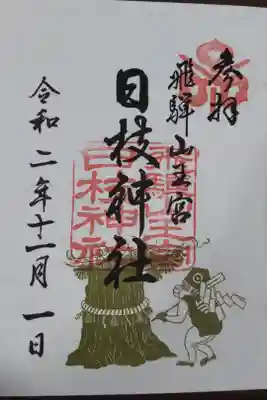 参拝
飛騨山王宮
日枝神社
令和二年十一月一日
飛騨山王宮
日枝神社